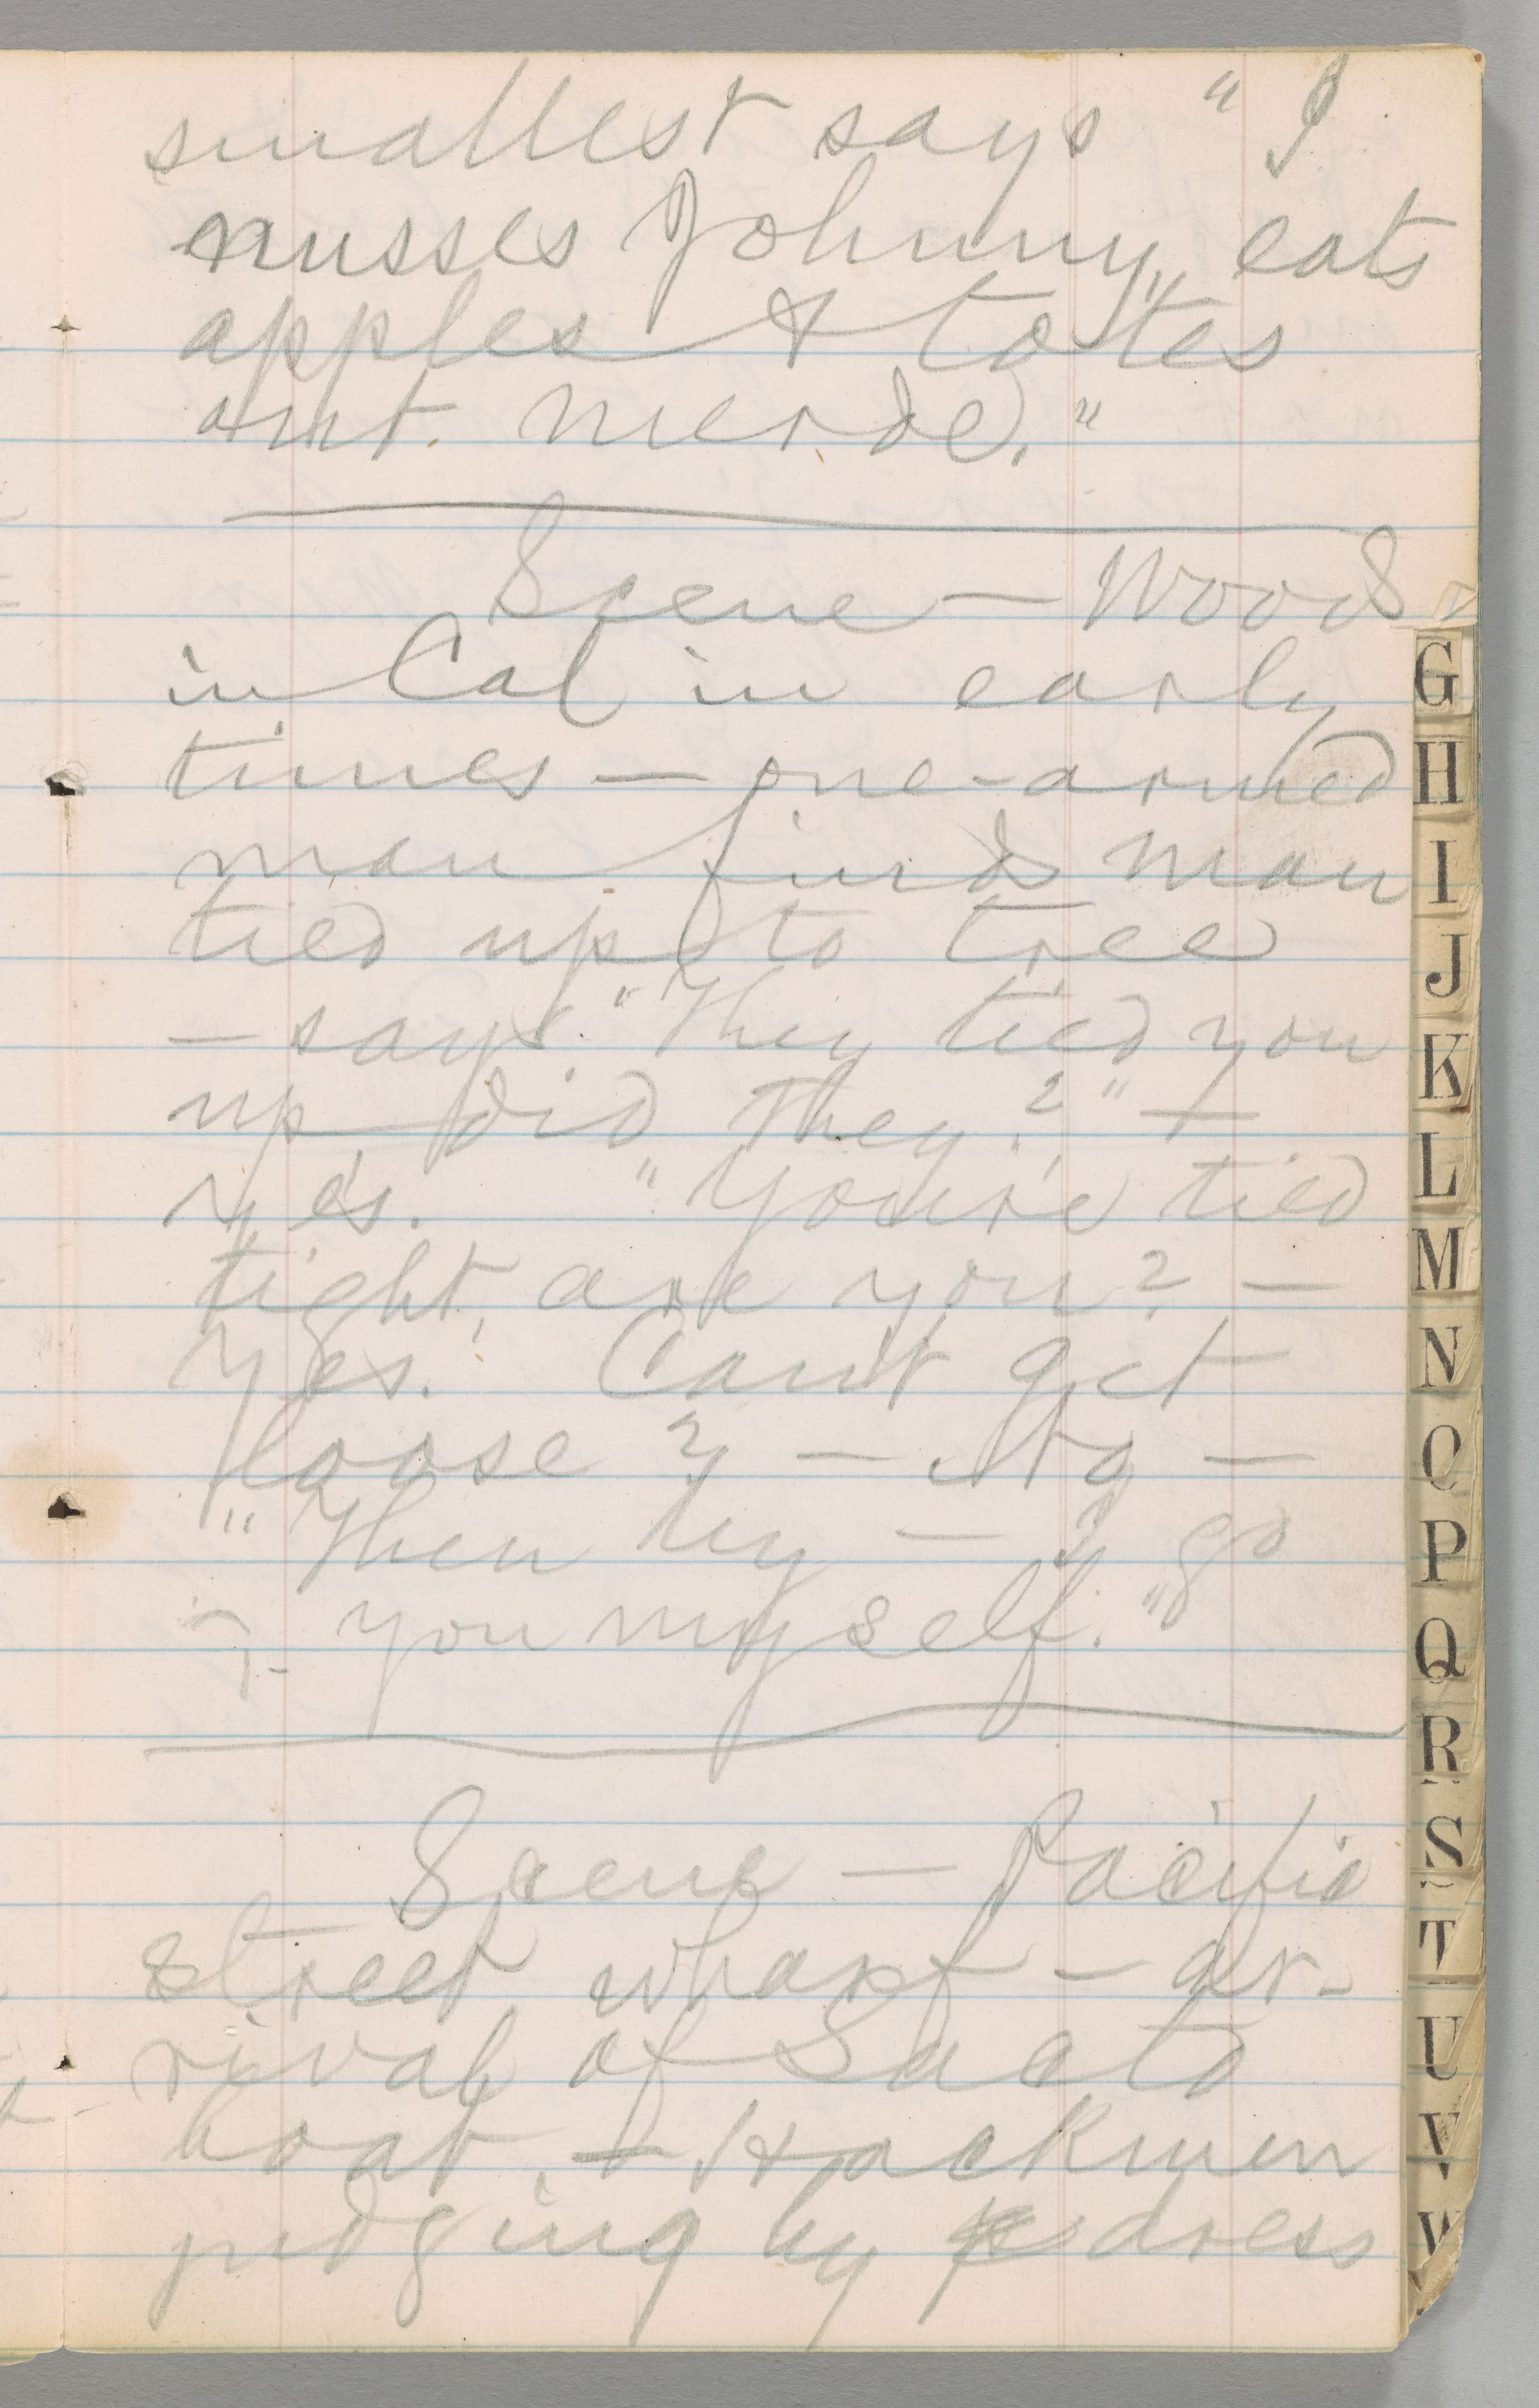 smallest says " I
nusses Johnny, eats
apples & totes
out merde."
Scene — Woods
in Cal in early
times — one-armed
man finds man
tied up to tree
— says "They tied you
up, did they?" —
Yes. "You're tied
tight, are you? —
Yes. Can't get
loose? — No —
"Then by — I'll go
you myself."
Scene — Pacific
street wharf — ar-
rival of Sacto
boat. — Hackmen
judging by dress
G
H
I
J
K
L
M
N
O
P
Q
R
S
T
U
V
W